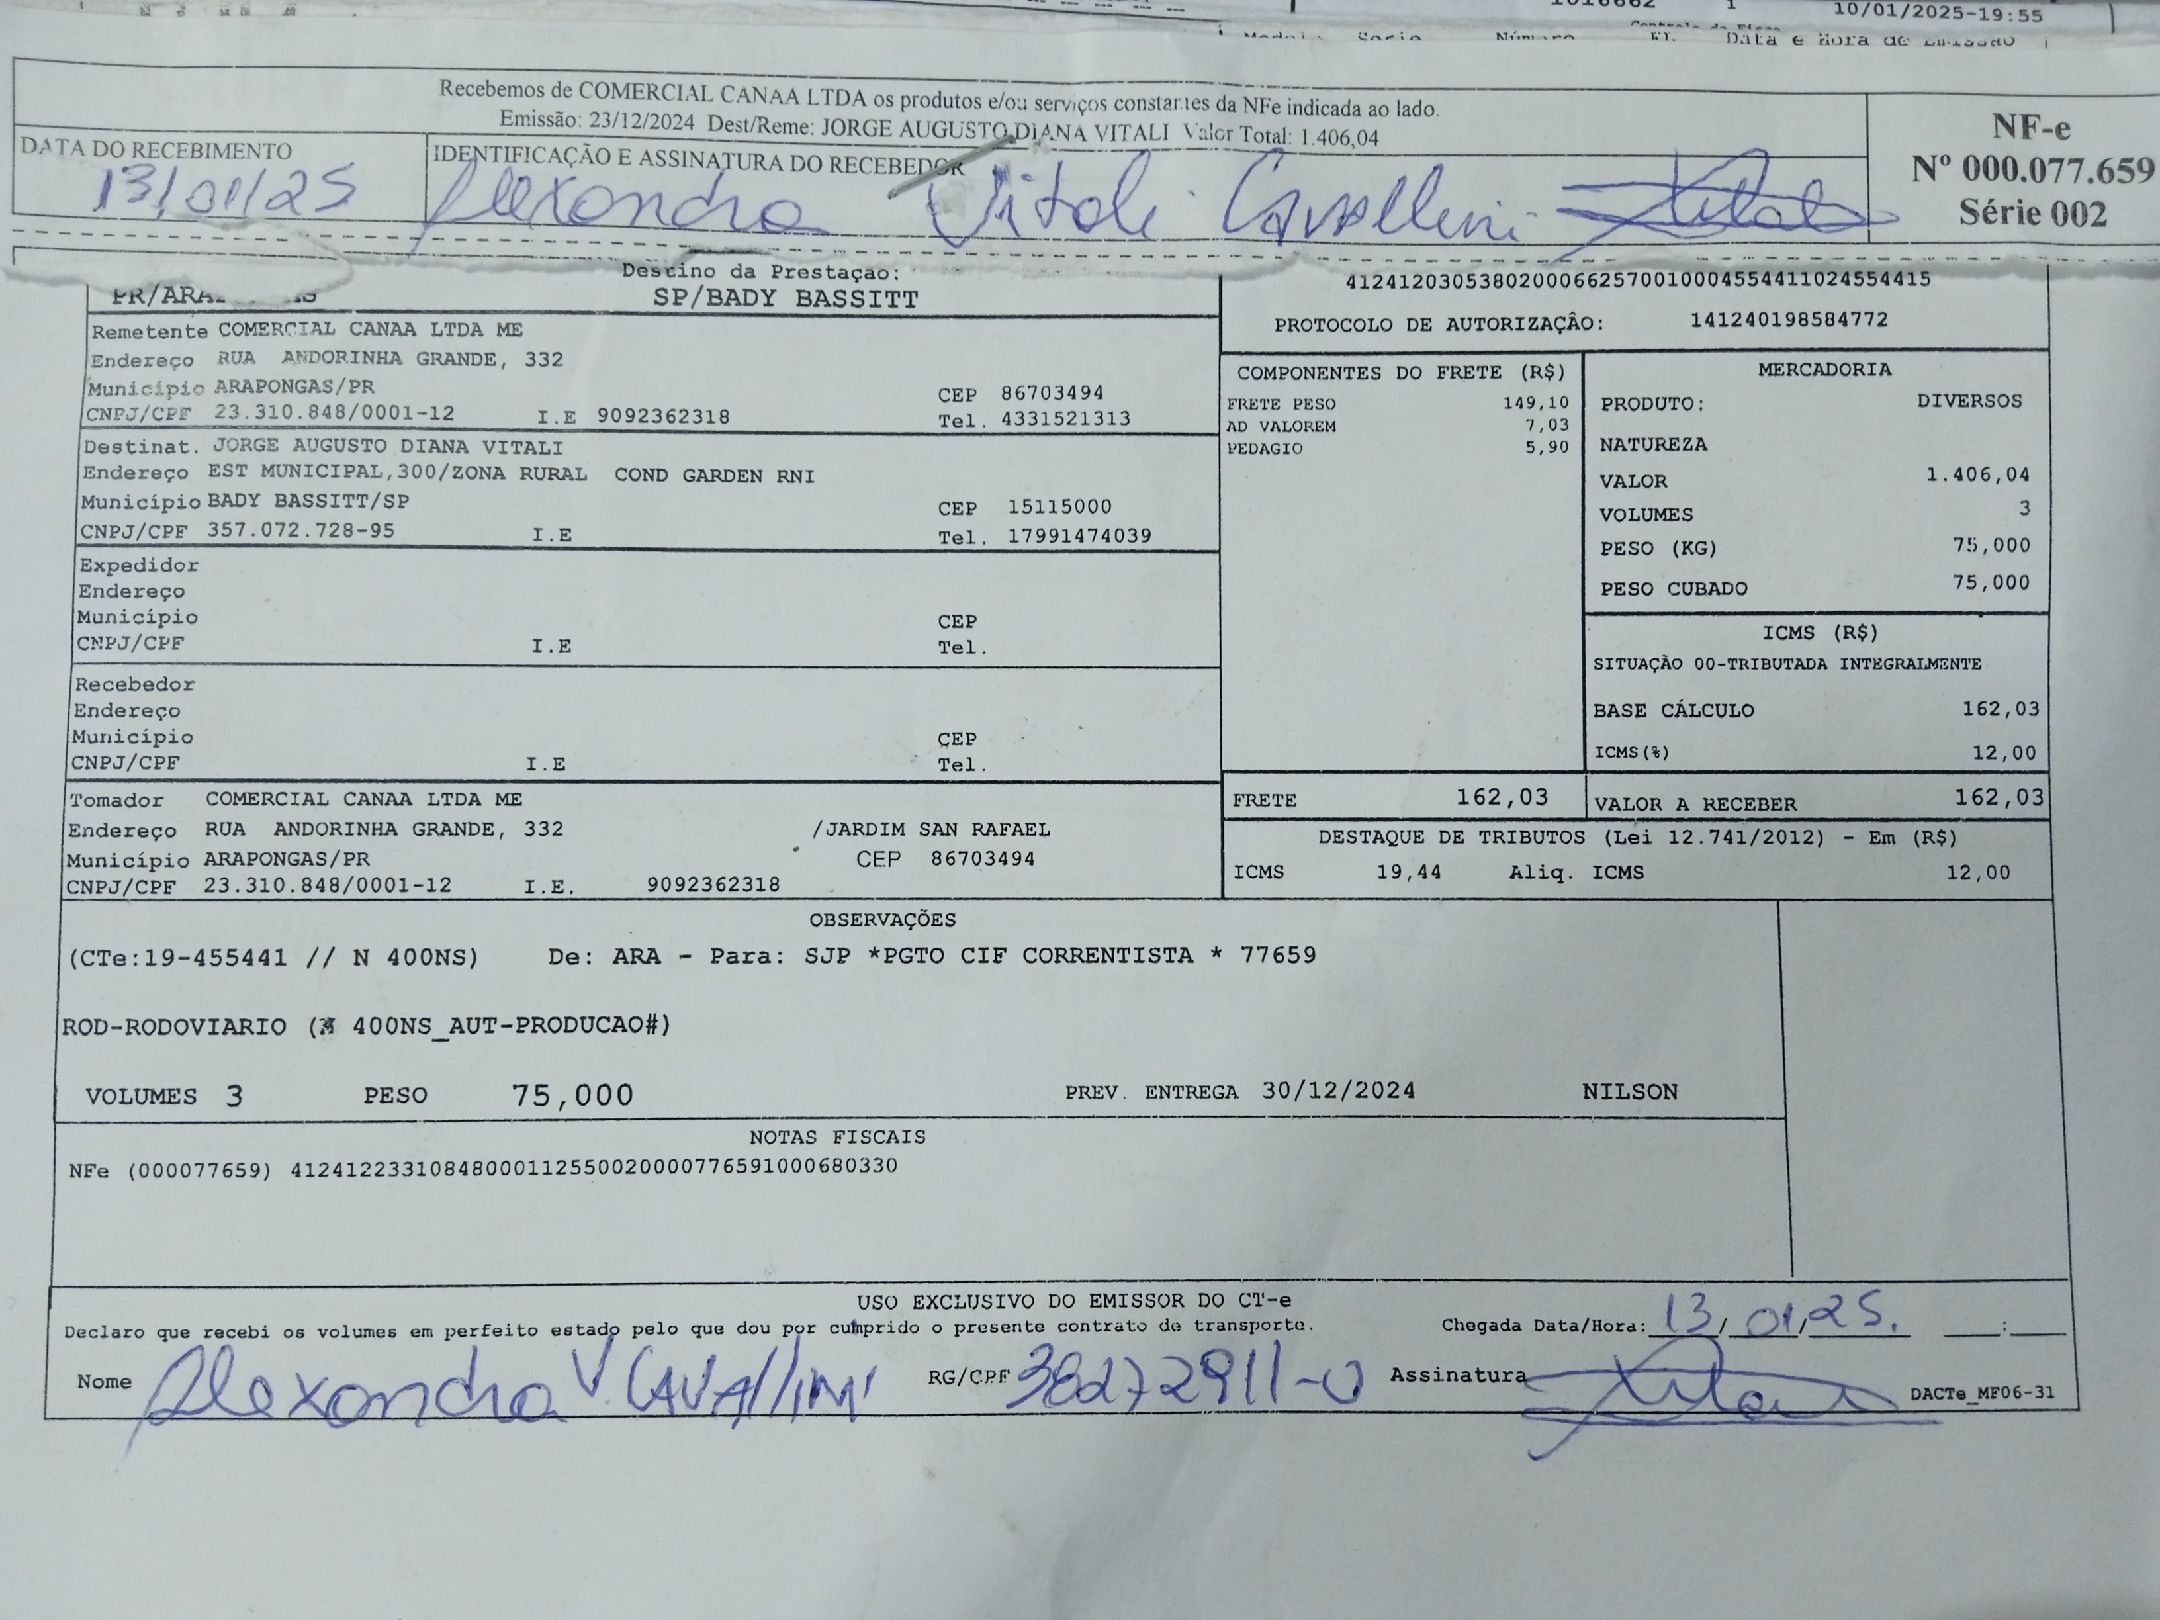 10/01/2025-19:55
Data e Hora de Emissão
Recebemos de COMERCIAL CANAA LTDA os produtos e/ou serviços constantes da NFe indicada ao lado.
Emissão: 23/12/2024 Dest/Reme: JORGE AUGUSTO DIANA VITALI Valor Total: 1.406,04
NF-e
Nº 000.077.659
Série 002
DATA DO RECEBIMENTO
13/01/25
IDENTIFICAÇÃO E ASSINATURA DO RECEBEDOR
Alexandra Vitali Cavallini
Destino da Prestação:
SP/BADY BASSITT
41241203053802000662570010004554411024554415
PROTOCOLO DE AUTORIZAÇÃO: 141240198584772
Remetente COMERCIAL CANAA LTDA ME
Endereço RUA ANDORINHA GRANDE, 332
Município ARAPONGAS/PR CEP 86703494
CNPJ/CPF 23.310.848/0001-12 I.E 9092362318 Tel. 4331521313
Destinat. JORGE AUGUSTO DIANA VITALI
Endereço EST MUNICIPAL,300/ZONA RURAL COND GARDEN RNI
Município BADY BASSITT/SP CEP 15115000
CNPJ/CPF 357.072.728-95 I.E Tel. 17991474039
Expedidor
Endereço
Município CEP
CNPJ/CPF I.E Tel.
Recebedor
Endereço
Município CEP
CNPJ/CPF I.E Tel.
Tomador COMERCIAL CANAA LTDA ME
Endereço RUA ANDORINHA GRANDE, 332 /JARDIM SAN RAFAEL
Município ARAPONGAS/PR CEP 86703494
CNPJ/CPF 23.310.848/0001-12 I.E. 9092362318
COMPONENTES DO FRETE (R$)
FRETE PESO 149,10
AD VALOREM 7,03
PEDAGIO 5,90
MERCADORIA
PRODUTO: DIVERSOS
NATUREZA
VALOR 1.406,04
VOLUMES 3
PESO (KG) 75,000
PESO CUBADO 75,000
ICMS (R$)
SITUAÇÃO 00-TRIBUTADA INTEGRALMENTE
BASE CÁLCULO 162,03
ICMS(%) 12,00
FRETE 162,03 VALOR A RECEBER 162,03
DESTAQUE DE TRIBUTOS (Lei 12.741/2012) - Em (R$)
ICMS 19,44 Aliq. ICMS 12,00
OBSERVAÇÕES
(CTe:19-455441 // N 400NS) De: ARA - Para: SJP *PGTO CIF CORRENTISTA * 77659
ROD-RODOVIARIO ( 400NS_AUT-PRODUCAO#)
VOLUMES 3 PESO 75,000 PREV. ENTREGA 30/12/2024 NILSON
NOTAS FISCAIS
NFe (000077659) 41241223310848000112550020000776591000680330
USO EXCLUSIVO DO EMISSOR DO CT-e
Declaro que recebi os volumes em perfeito estado pelo que dou por cumprido o presente contrato de transporte. Chegada Data/Hora: 13/01/25. __:__
Nome Alexandra V. CAVAllINI RG/CPF 38272911-0 Assinatura DACTe_MF06-31